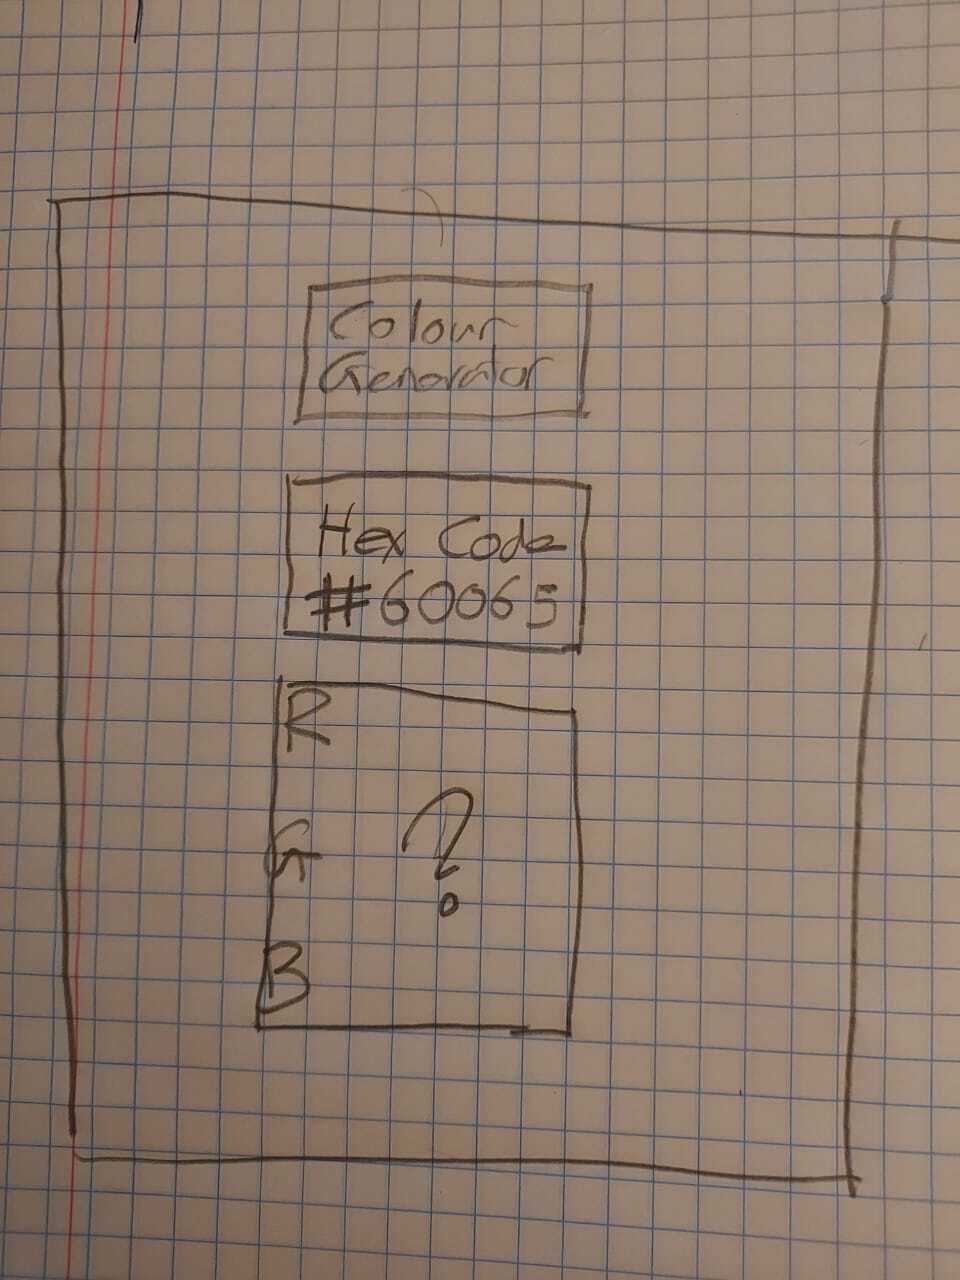 Colour
Generator
Hex Code
#60065
R
G
?
B